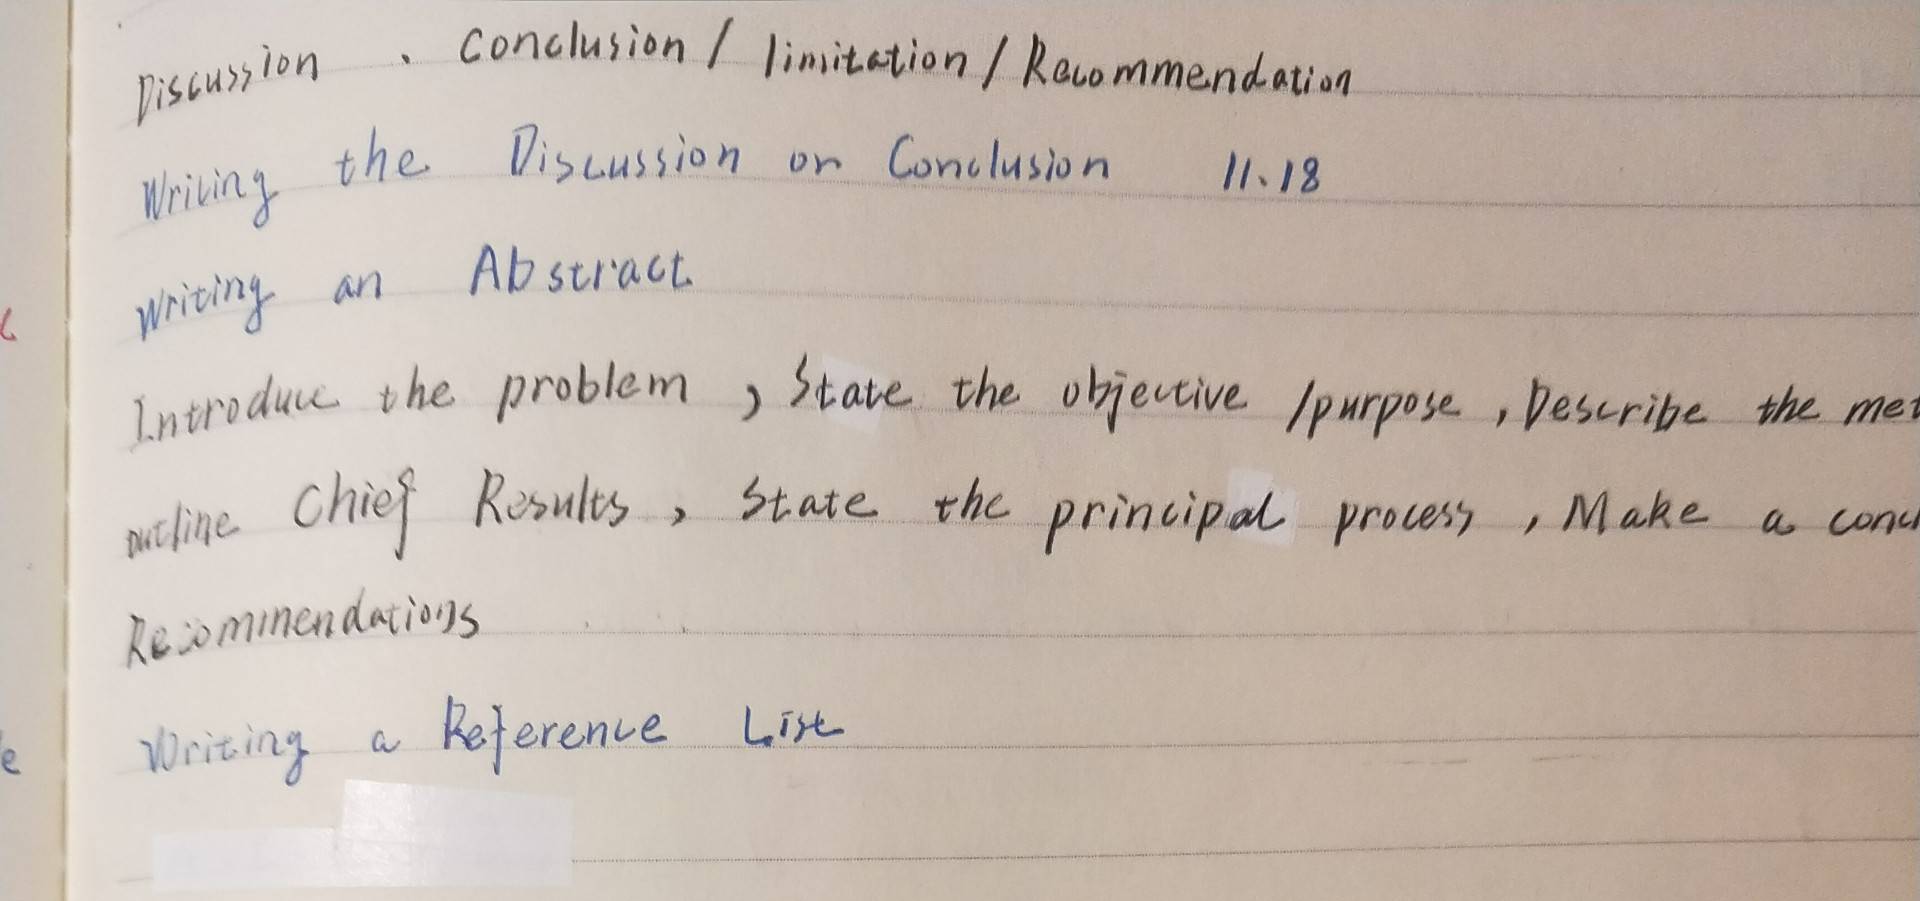 Discussion . Conclusion / limitation / Recommendation
Writing the Discussion or Conclusion 11.18
Writing an Abstract.
Introduce the problem , State the objective /purpose , Describe the met
outline Chief Results , State the principal process , Make a conc
Recommendations
Writing a Reference List